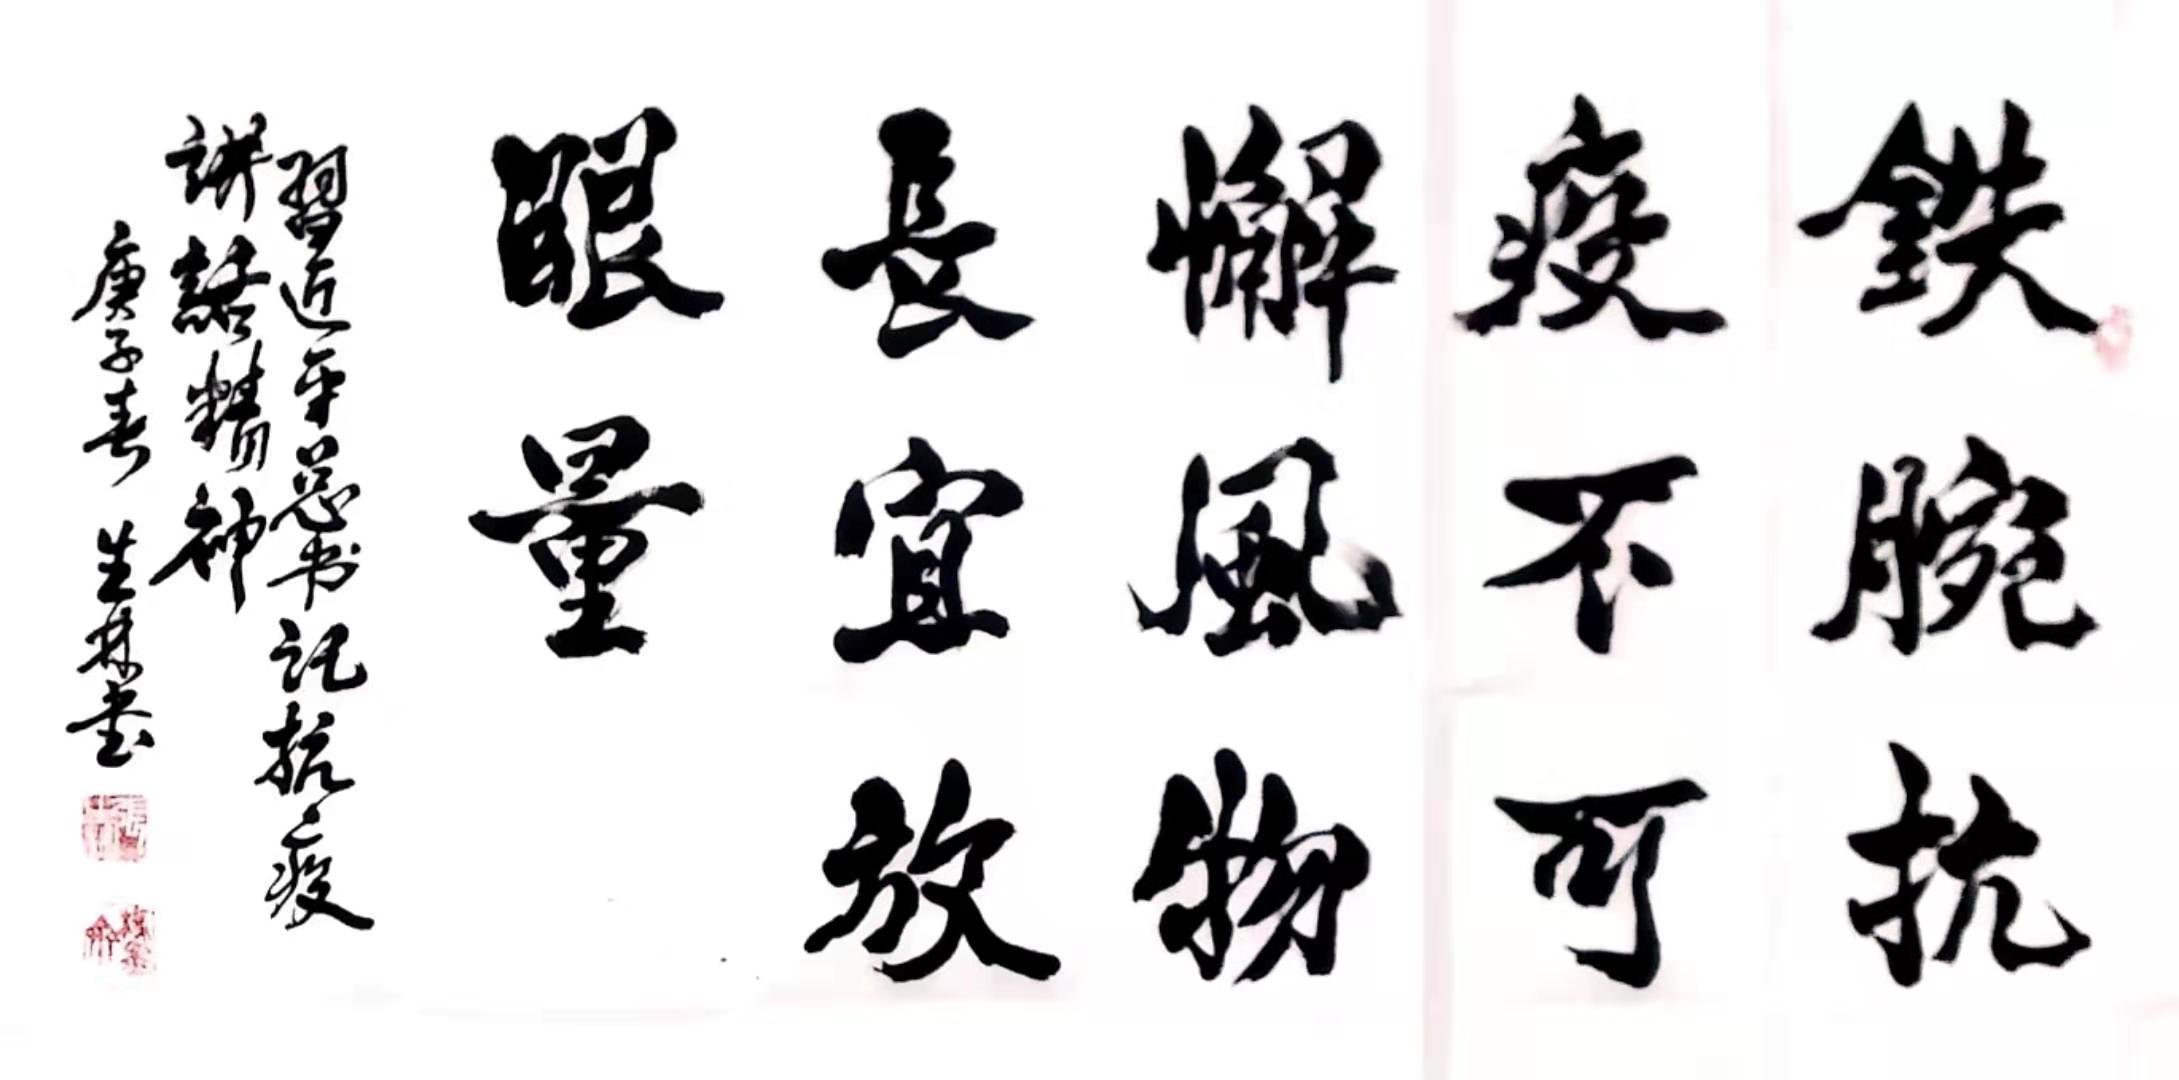 鉄腕抗
疫不可
懈風物
長宜放
眼量
習近平总书记抗疫
講話精神
庚子春 生林书